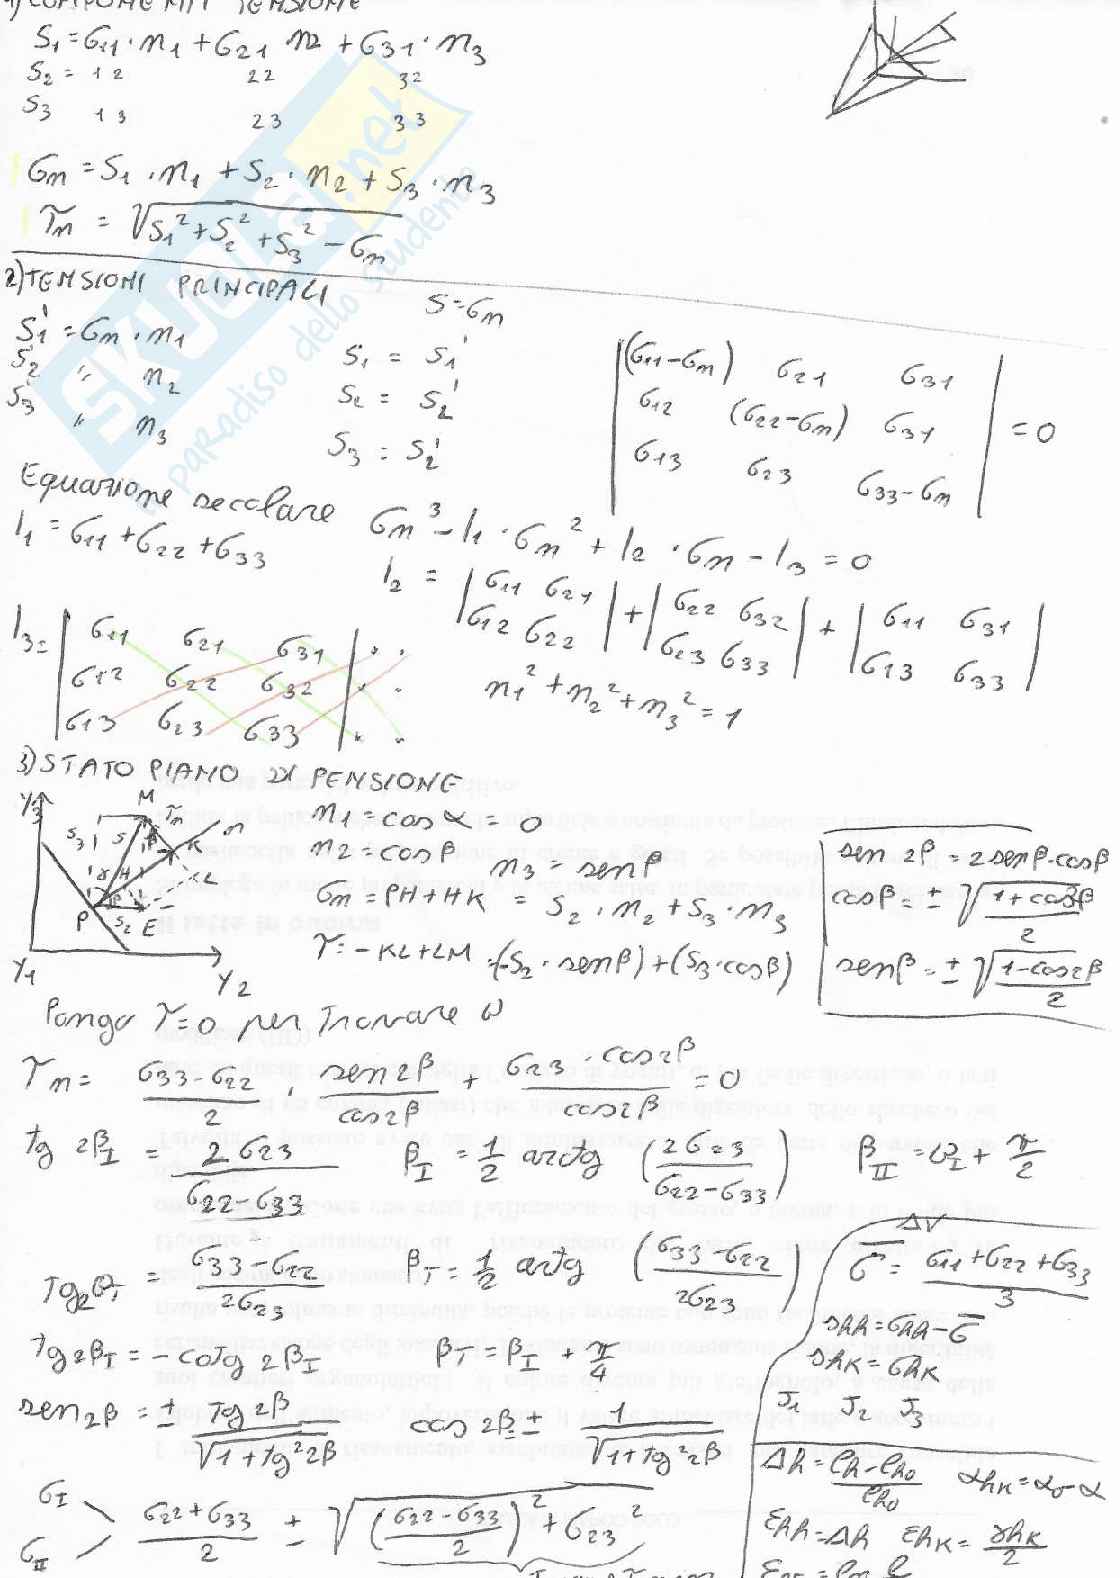 1) COMPONENTI TENSIONE
S₁ = σ₁₁ · n₁ + σ₂₁ n₂ + σ₃₁ · n₃
S₂ = 12 22 32
S₃ 13 23 33
σn = S₁ · n₁ + S₂ · n₂ + S₃ · n₃
τn = √(S₁² + S₂² + S₃² − σn)
2) TENSIONI PRINCIPALI
S = σn
S₁' = σn · n₁
S₂' " n₂
S₃' " n₃
S₁ = S₁'
S₂ = S₂'
S₃ = S₂'
|(σ₁₁−σn) σ₂₁ σ₃₁|
|σ₁₂ (σ₂₂−σn) σ₃₁| = 0
|σ₁₃ σ₂₃ σ₃₃−σn|
Equazione secolare σn³ − I₁ · σn² + I₂ · σn − I₃ = 0
I₁ = σ₁₁ + σ₂₂ + σ₃₃
I₂ = |σ₁₁ σ₂₁| + |σ₂₂ σ₃₂| + |σ₁₁ σ₃₁|
|σ₁₂ σ₂₂| |σ₂₃ σ₃₃| |σ₁₃ σ₃₃|
I₃ = |σ₁₁ σ₂₁ σ₃₁|
|σ₁₂ σ₂₂ σ₃₂|
|σ₁₃ σ₂₃ σ₃₃|
n₁² + n₂² + n₃² = 1
3) STATO PIANO DI PENSIONE
Y₃ M τn n
S₃ S K
H L
P S₂ E
Y₁ Y₂
n₁ = cos α = 0
n₂ = cosβ n₃ = senβ
σn = PH + HK = S₂ · n₂ + S₃ · n₃
τ = −KL + LM · (−S₂ · senβ) + (S₃ · cosβ)
sen 2β = 2 senβ · cosβ
cosβ = ± √((1 + cos2β)/2)
senβ = ± √((1 − cos2β)/2)
Pongo τ = 0 per trovare ω
τn = (σ₃₃ − σ₂₂)/2 · sen2β/cos2β + σ₂₃ · cos2β/cos2β = 0
tg 2βI = 2σ₂₃/(σ₂₂ − σ₃₃) βI = 1/2 arctg (2σ₂₃/(σ₂₂ − σ₃₃)) βII = ωI + π/2
Tg2θT = (σ₃₃ − σ₂₂)/2σ₂₃ βT = 1/2 arctg ((σ₃₃ − σ₂₂)/2σ₂₃)
tg2βI = − cotg 2βI βT = βI + π/4
sen2β = ± Tg2β/√(1 + tg²2β) cos 2β = ± 1/√(1 + tg²2β)
σI
σII (σ₂₂ + σ₃₃)/2 ± √(((σ₂₂ − σ₃₃)/2)² + σ₂₃²)
ΔV
σ̄ = (σ₁₁ + σ₂₂ + σ₃₃)/3
shh = σhh − σ̄
shk = σhk
J₁ J₂ J₃
Δh = (ℓh − ℓh₀)/ℓh₀ αhk = α₀ − α
εhh = Δh εhk = γhk/2
SKUOLA.net
il paradiso dello studente